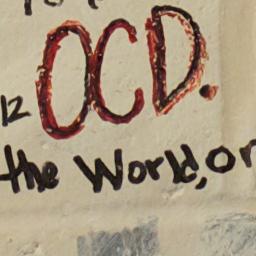 OCD.
12
the World, or